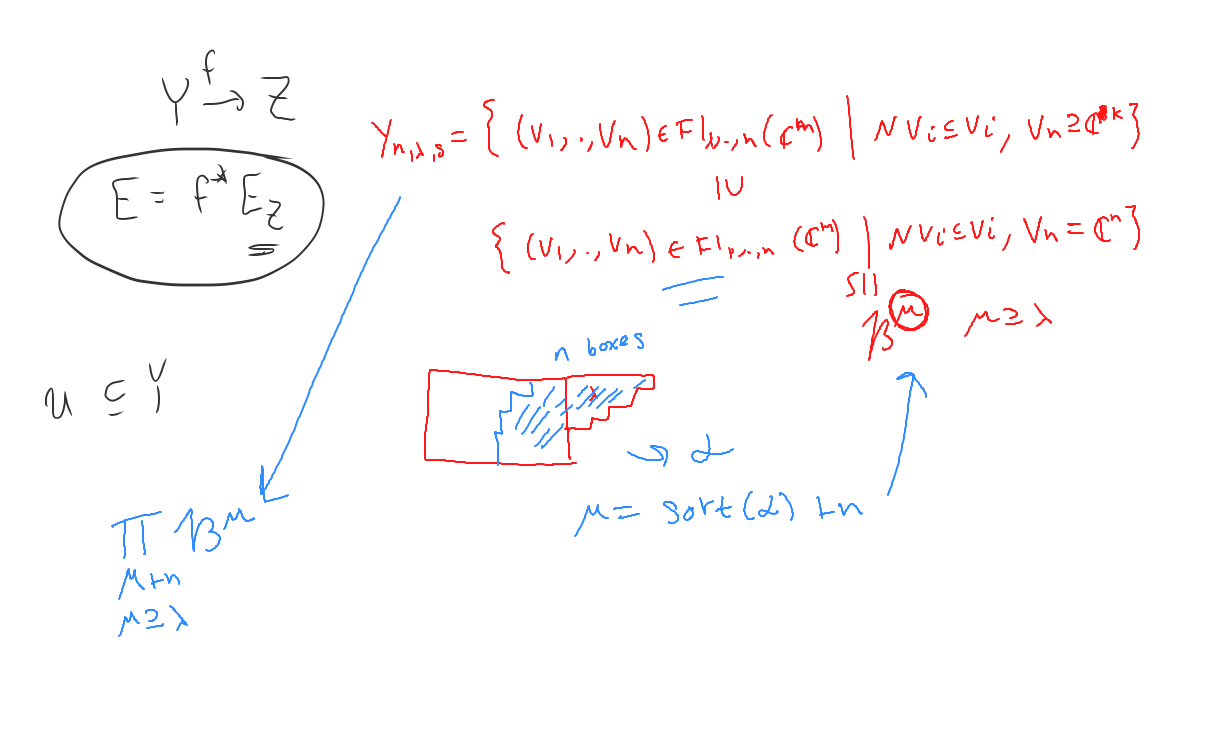 Y →f Z
E = f* E_Z
Y_{n,λ,s} = { (V_1, ., V_n) ∈ Fl_{1,..,n}(ℂ^m) | N V_i ⊆ V_i, V_n ⊇ ℂ^k }
∪|
{ (V_1, ., V_n) ∈ Fl_{1,..,n}(ℂ^m) | N V_i ⊆ V_i, V_n = ℂ^n }
S||
B^μ μ ⊇ λ
n boxes
λ
U ⊆ Y
→ α
μ = sort(α) ⊢ n
∏ B^μ
μ ⊢ n
μ ⊇ λ